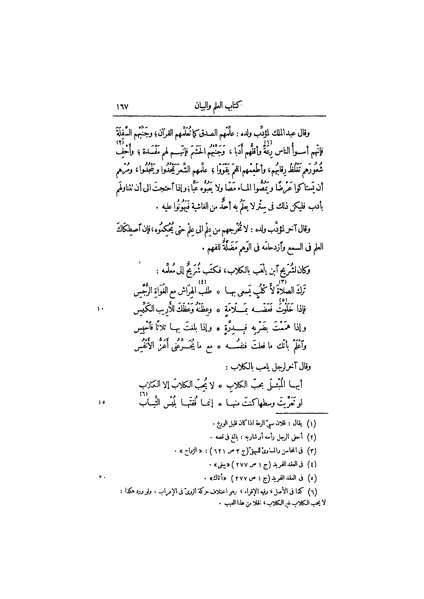 كتاب العلم والبيان ١٦٧
وقال عبد الملك لمؤدِّب ولده : علِّمهم الصدق كما تُعلِّمهم القرآن؛ وجَنِّبهم السَّفِلَةَ
فإنّهم أسوأُ الناس رِعةً وأقلُّهم أدَبا ، وجَنِّبْهم الحَشَمَ فإنّهم لهم مَفْسَدة ؛ وأحْفِ
شُعُورَهم تَغْلُظْ رِقابُهم، وأطعِمْهم اللحمَ يَقْوَوا ؛ علِّمهم الشِّعرَ يَمْجُدوا ويَنْجُدوا، ومُرْهم
أن يَستاكوا عَرْضًا ويَمُصُّوا الماء مَصًّا ولا يَعُبُّوه عبًّا؛ وإذا احتجتَ الى أن تتناولَهم
بأدب فليكن ذلك فى سِتْر لا يعلَمُ به أحدٌ من الغاشية فيَهُونُوا عليه .
وقال آخر لمؤدِّب ولده : لا تُخْرِجهم من عِلْم الى عِلْم حتى يُحْكِموه، فإن اصطكاكَ
العلم فى السمع وآزدحامَه فى الوهْم مَضَلَّةٌ للفهم .
وكان لشُرَيْح آبن يلعَب بالكلاب، فكتَب شُرَيْحٌ الى مُعلِّمه :
تَرَكَ الصَّلاةَ لأَكْلُبٍ يَسعى بها * طلَبَ الهِراشِ مع الغُواةِ الرُّجَّسِ
فإذا خَلَوْتَ فعَضَّه بِمَلامَةٍ * وعِظَنْهُ وَعْظَكَ للأَرِيبِ الكَيِّسِ ١٠
وإذا هَمَمْتَ بضَرْبِه فبِدِرَّةٍ * وإذا بلغتَ بها ثلاثًا فآحْبِسِ
وآعْلَم بأنَّك ما فعلتَ فنفسُه * مع ما يُجَرِّعُنى أعَزُّ الأَنْفُسِ
وقال آخر لرجل يلعب بالكلاب :
أيها المُبْتَلَى بحبّ الكلابِ * لا يُحِبّ الكلابَ إلا الكلابُ
لو تعرَّيتَ وسطها كنتَ منها * إنما فُقْتَها بلُبْسِ الثِّيابِ ١٥
(١) يقال : فلان سيّئ الرعة اذا كان قليل الورع .
(٢) أحفى الرجل رأسه أو شاربه : بالغ فى قصه .
(٣) فى المحاسن والمساوئ للبيهقىّ (ج ٣ ص ٦٢١) : «الرواح» .
(٤) فى العقد الفريد (ج ١ ص ٢٧٧) «يبغى» .
(٥) فى العقد الفريد (ج ١ ص ٢٧٧) «أتاك» . ٢٠
(٦) كذا فى الأصل، وفيه الإقواء، وهو اختلاف حركة الروىّ فى الإعراب . ولو ورد هكذا :
لا يحب الكلاب غير الكلاب، لخلا من هذا العيب .